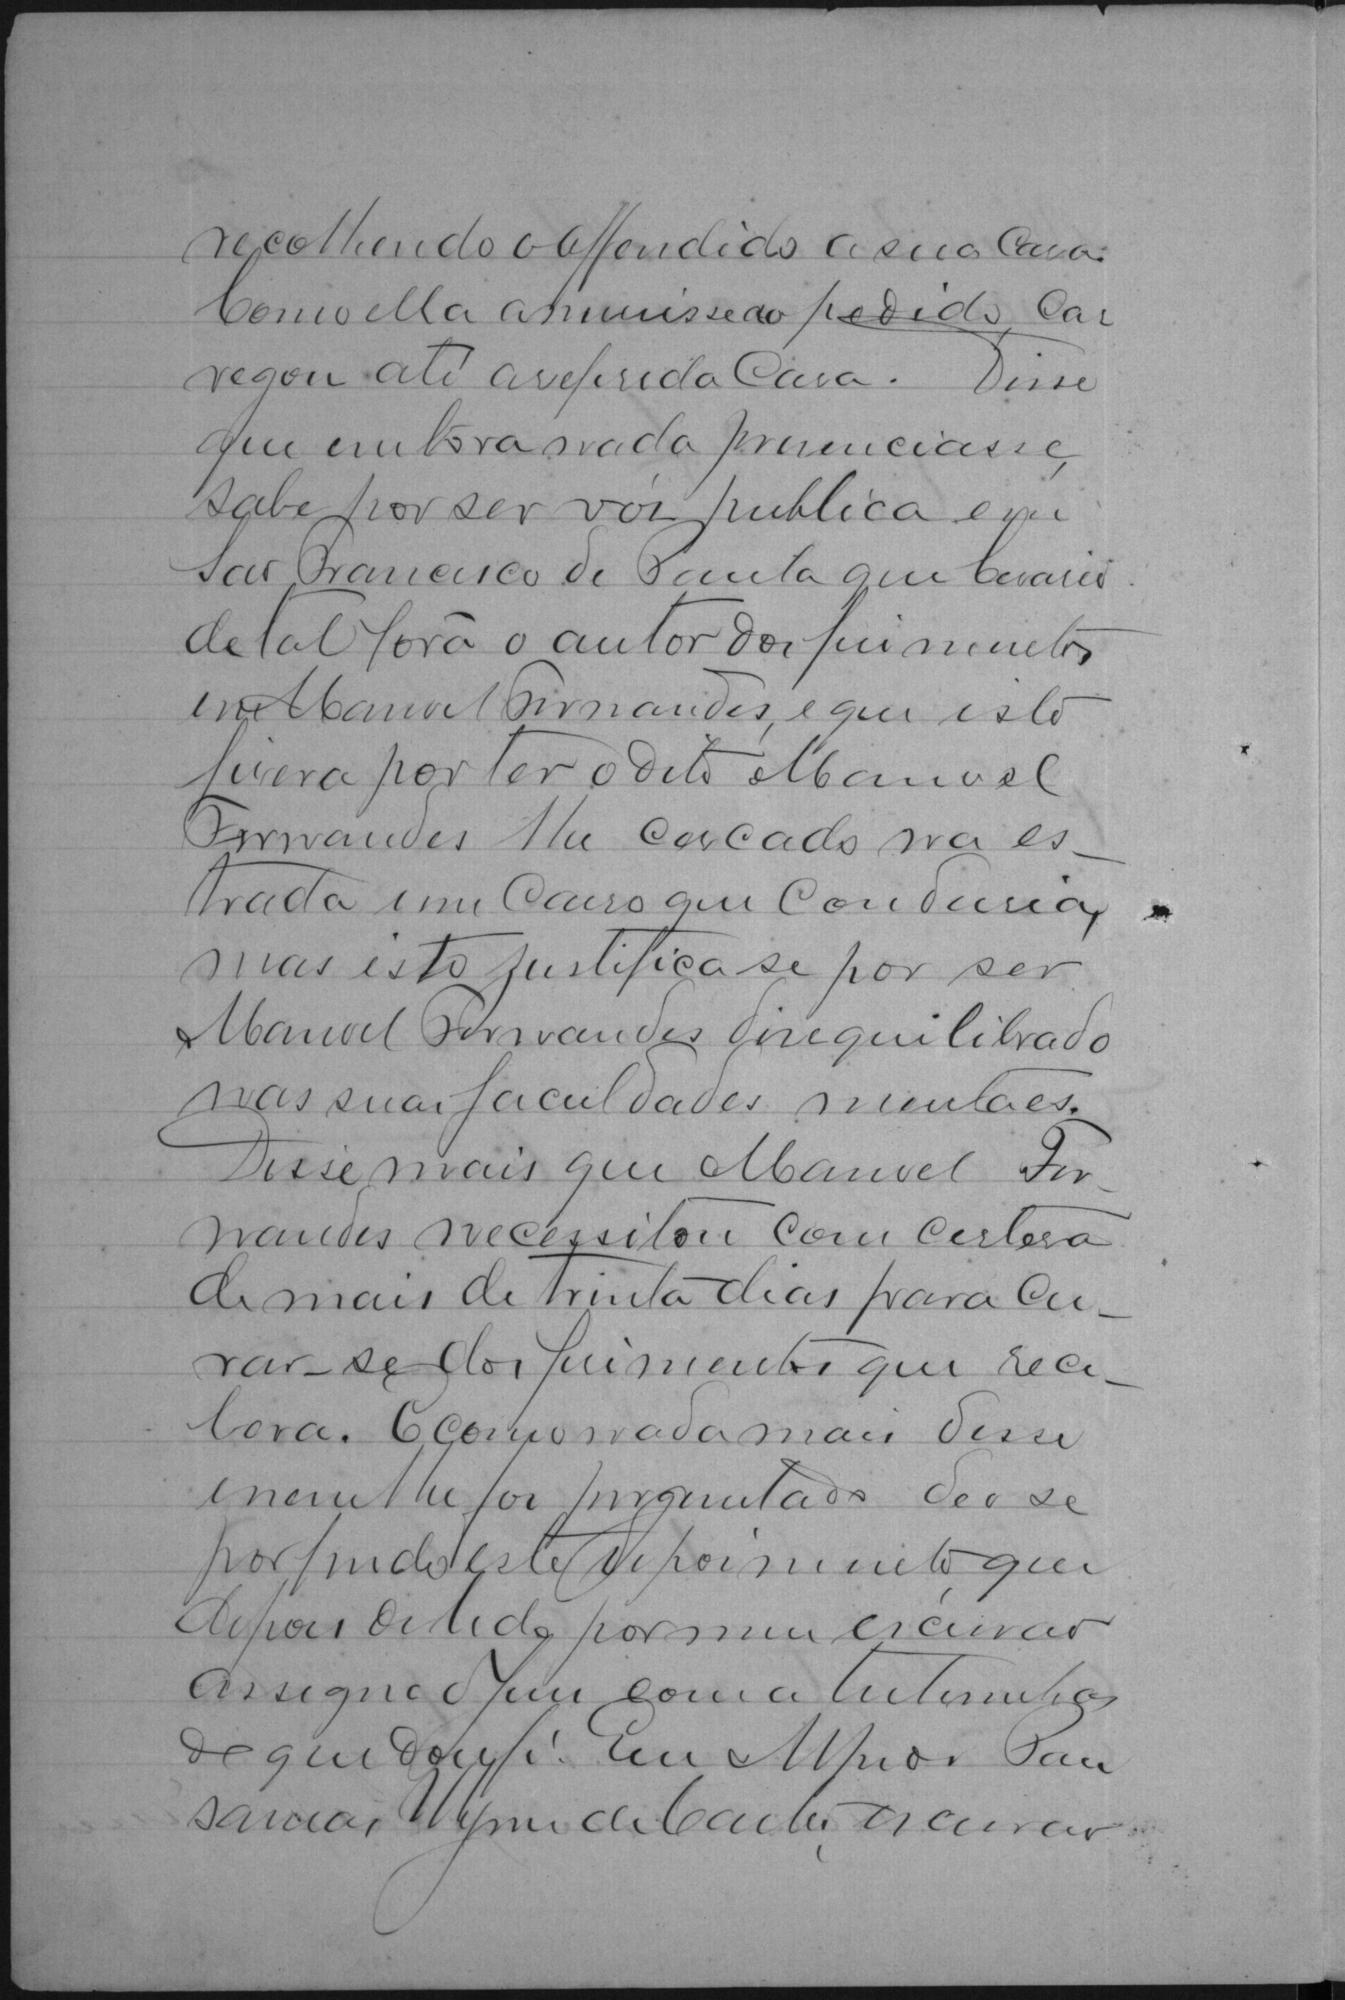 recolhendo o offendido a sua casa.
Como ella annuisse ao pedido, car
regou até a referida casa. Disse
que embora nada presenciasse,
sabe por ser vóz publica em
Sao Francisco de Paula que
de tal fora o autor dos ferimentos
em Manoel Fernandes, e que isto
fizera por ter o dito Manoel
Fernandes lhe cercado na es_
trada um carro que condusia,
mas isto justifica se por ser
Manoel Fernandes disequilibrado
nas suas faculdades mentaes.
Disse mais que Manoel Fer_
nandes necessitou com certesa
de mais de trinta dias para cu_
rar-se dos ferimentos que rece_
bera. E como nada mais disse
e nem lhe foi perguntado deo se
por findo este depoimento, que
depois de lido por mim escrivao
assigna o Juiz com a testemunha
de que dou fé. Eu
de escrivao